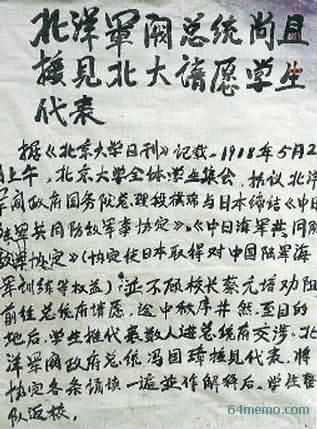 北洋军阀总统尚且
接见北大请愿学生
代表
据《北京大学日刊》记载，1918年5月2
日上午，北京大学全体学生集会，抗议北洋
军阀政府国务院总理段祺瑞与日本缔结《中日
陆军共同防敌军事协定》、《中日海军共同防
敌军事协定》（协定使日本取得对中国陆军海
军训练等权益）并不顾校长蔡元培劝阻
前往总统府请愿，途中秩序井然，至目的
地后，学生推代表数人进总统府交涉，北
洋军阀政府总统冯国璋接见代表，将
协定各条诵读一遍并作解释后，学生整
队返校。
64memo.com